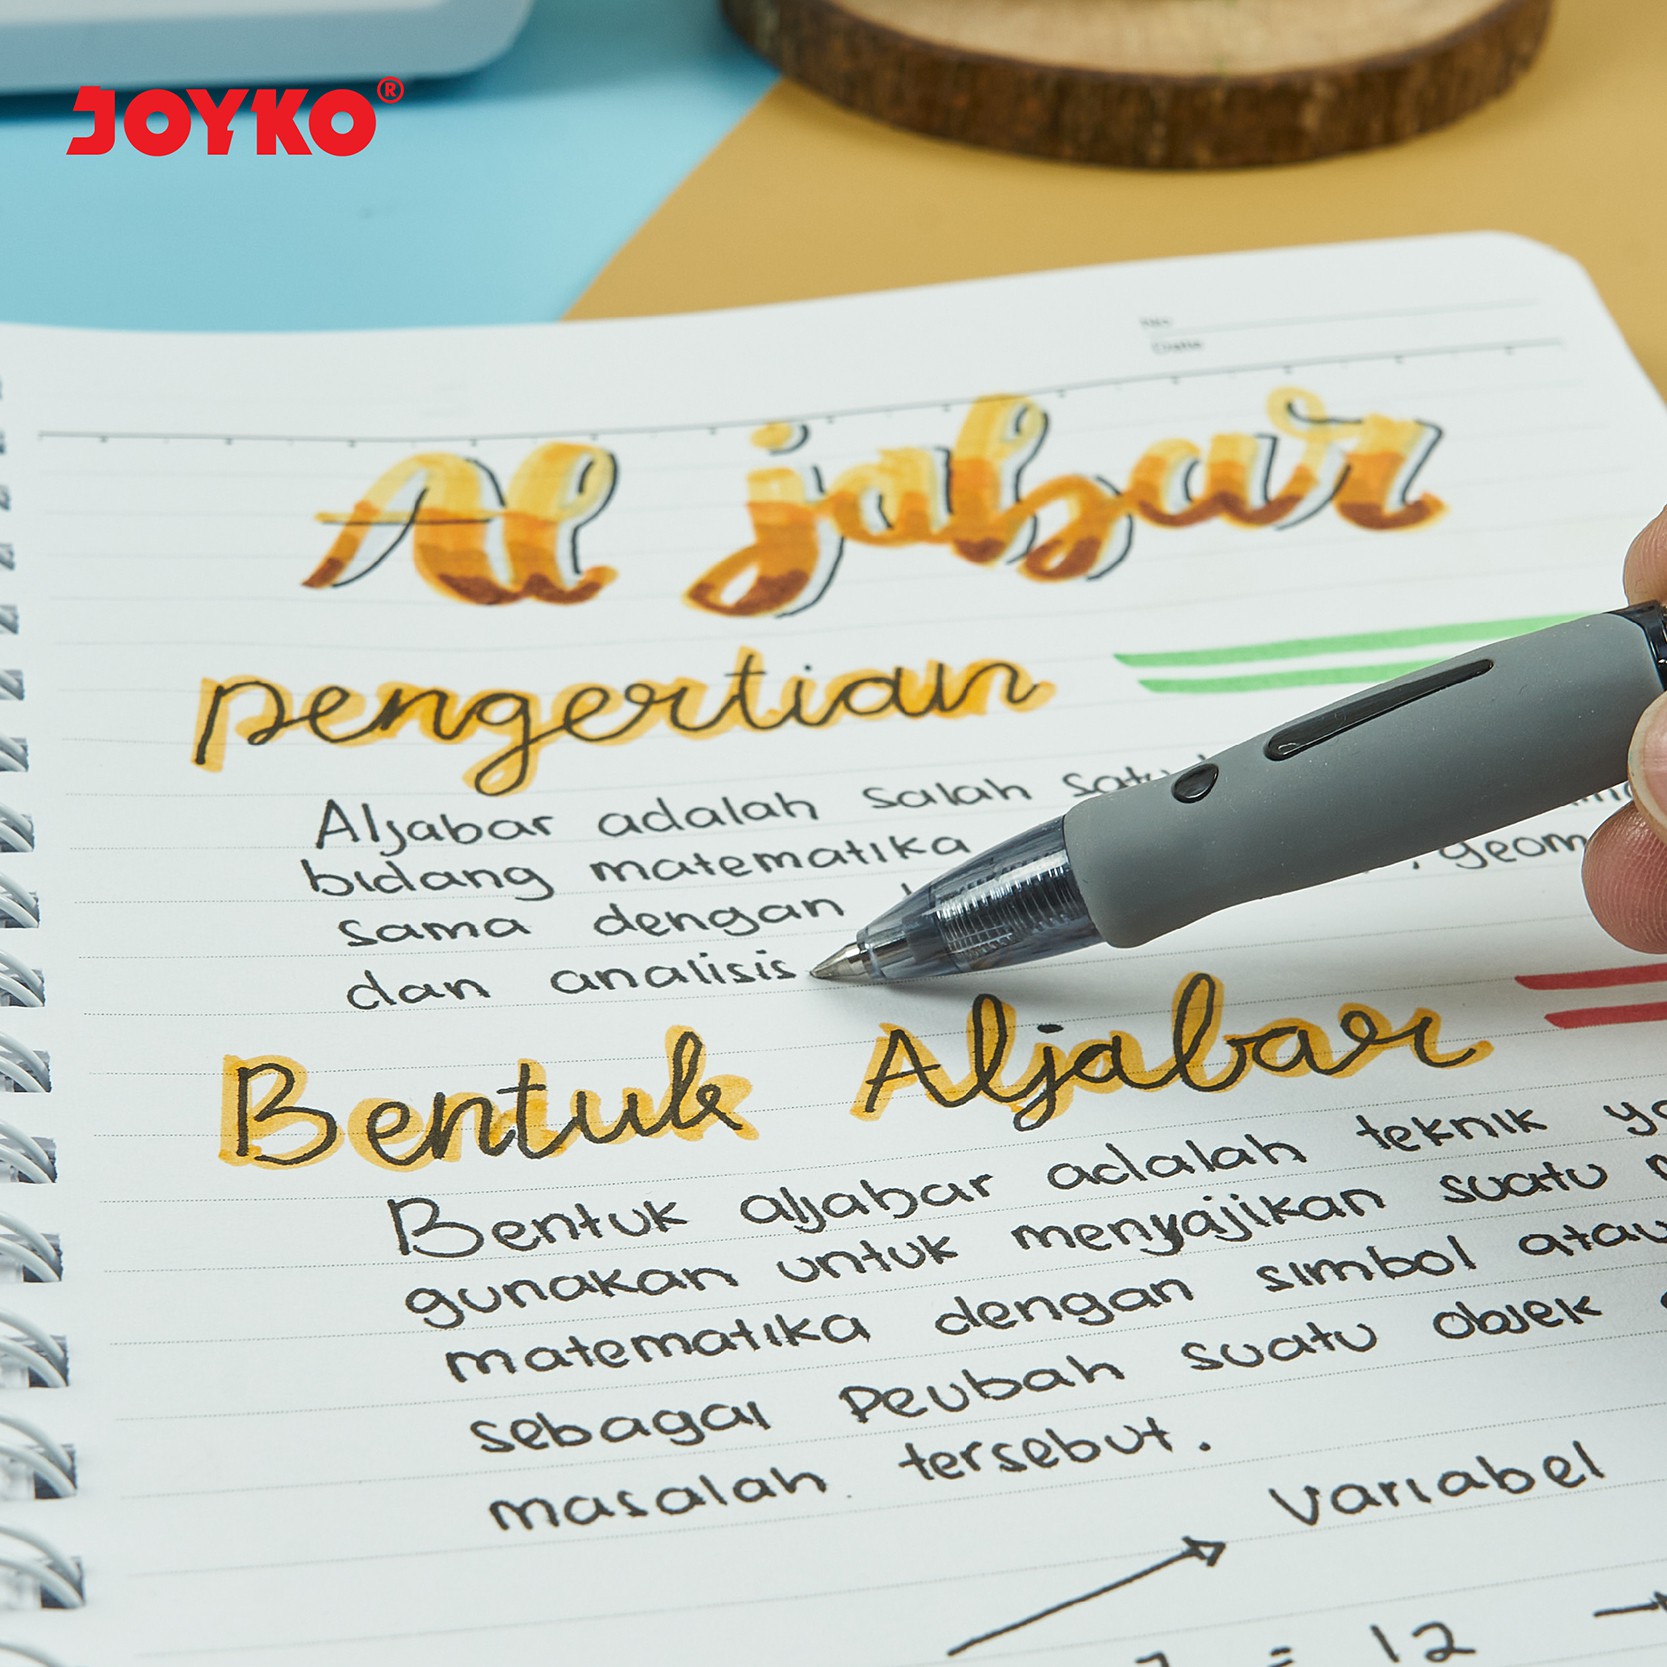 JOYKO®
No
Date
Al jabar
pengertian
Aljabar adalah salah satu
bidang matematika
sama dengan , geom
dan analisis
Bentuk Aljabar
Bentuk aljabar adalah teknik
gunakan untuk menyajikan suatu
matematika dengan simbol atau
sebagai peubah suatu objek
masalah tersebut.
variabel
= 12